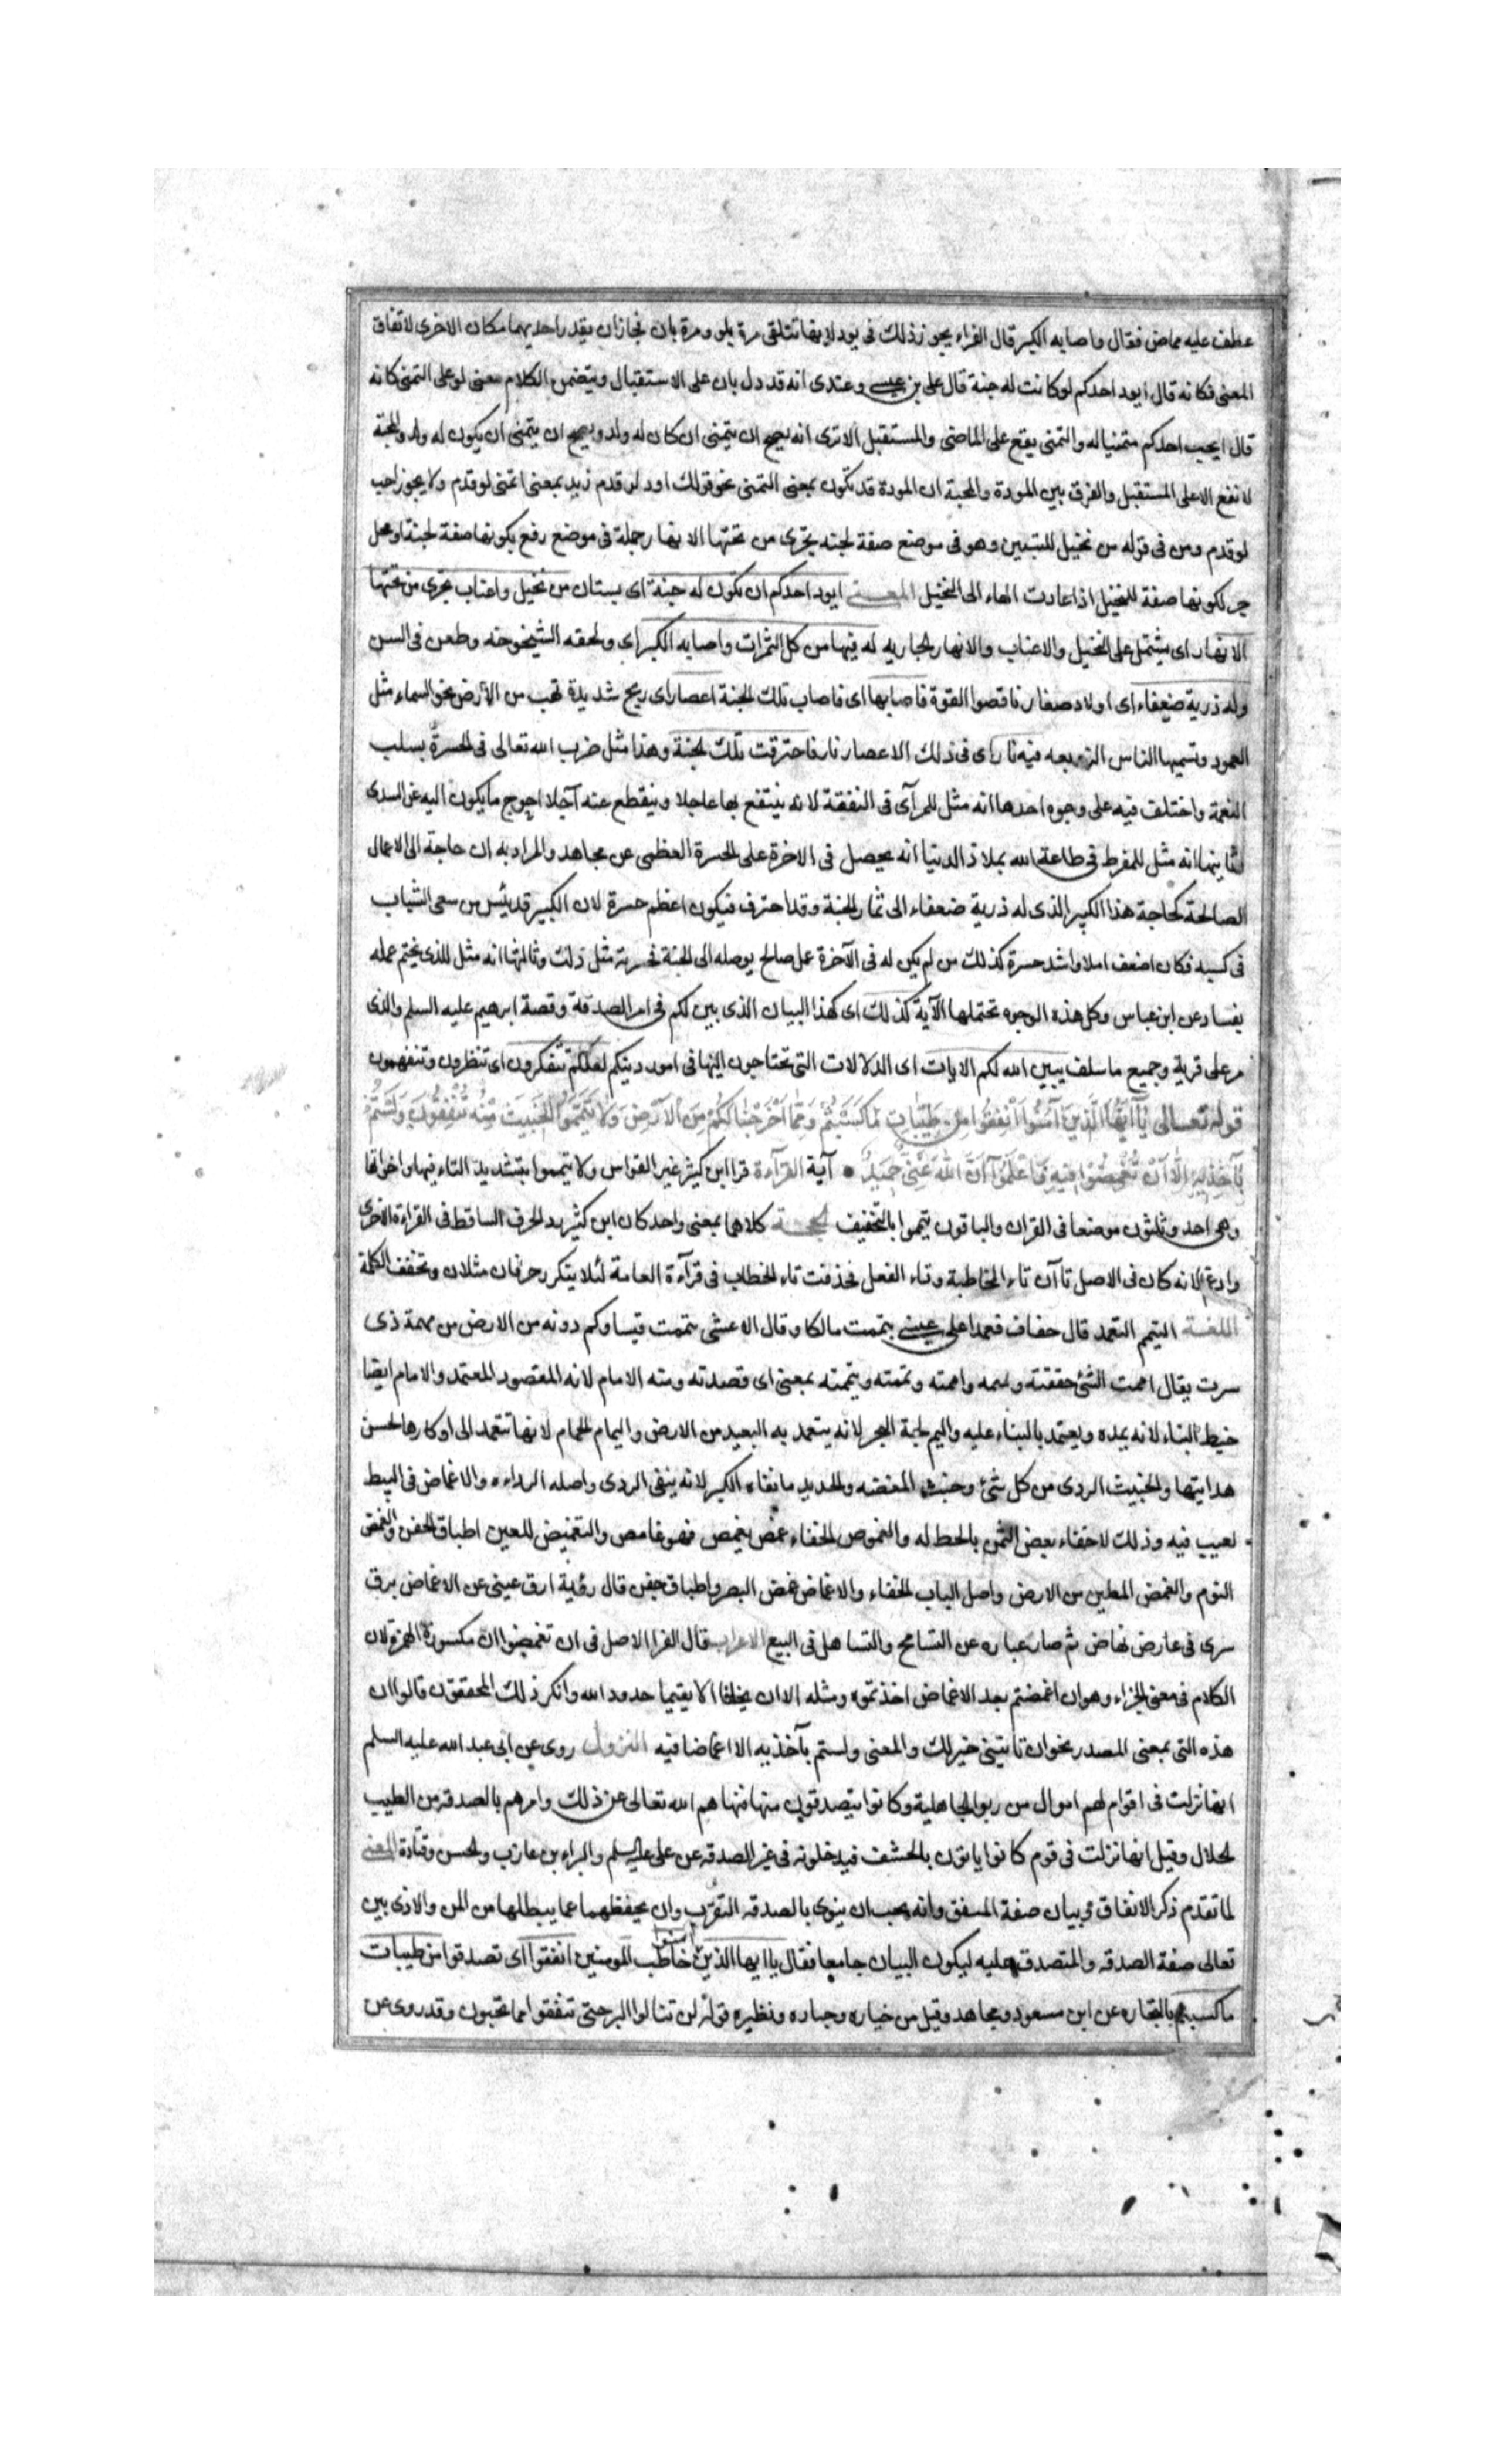 عطف عليه بماض فقال واصابه الكبر قال الفراء يجوز ذلك في يود لانها تتلقى مرة بلو ومرة بان فجازان يقدر احديهما مكان الاخرى لاتفاق
المعنى فكانه قال ايود احدكم لوكانت له جنة قال على بن عيسى وعندى انه قد دل بان على الاستقبال ويتضمن الكلام معنى لو على التمنى كانه
قال ايحب احدكم متمنيا له والتمنى يقع على الماضى والمستقبل الاترى انه يصح ان يتمنى ان كان له ولد ويصح ان يتمنى ان يكون له ولد والمحبة
لا تقع الا على المستقبل والفرق بين المودة والمحبة ان المودة قد تكون بمعنى التمنى نحو قولك اود لو قدم زيد بمعنى اتمنى لو قدم ولا يجوز احب
لو قدم ومن فى قوله من نخيل للتبيين وهو فى موضع صفة لجنه تجرى من تحتها الانهار جملة فى موضع رفع بكونها صفة لجنة او محل
جر لكونها صفة للنخيل اذا عادت الهاء الى النخيل المعنى ايود احدكم ان تكون له جنة اى بستان من نخيل واعناب تجرى من تحتها
الانهار اى يشتمل على النخيل والاعناب والانهار الجاريه له فيها من كل الثمرات واصابه الكبر اى ولحقه الشيخوخه وطعن فى السن
وله ذرية ضعفاء اى اولاد صغار ناقصوا القوة فاصابها اى فاصاب تلك الجنة اعصار اى ريح شديدة تهب من الأرض نحو السماء مثل
العمود وتسميها الناس الزوبعه فيه نار اى فى ذلك الاعصار نار فاحترقت تلك الجنة وهذا مثل ضرب الله تعالى فى الحسرة بسلب
النعمة واختلف فيه على وجوه احدها انه مثل للمرآى فى النفقة لانه ينتفع بها عاجلا وينقطع عنه آجلا احوج ما يكون اليه عن السدى
وثانيها انه مثل للمفرط فى طاعة الله بملاذ الدنيا انه يحصل فى الاخرة على الحسرة العظمى عن مجاهد والمراد به ان حاجة الى الاعمال
الصالحة كحاجة هذا الكبير الذى له ذرية ضعفاء الى ثمار الجنة وقد احترف فيكون اعظم حسرة لان الكبير قد يئس من سعى الشباب
فى كسبه فكان اضعف املا واشد حسرة كذلك من لم يكن له فى الآخرة عمل صالح يوصله الى الجنة فحسرته مثل ذلك وثالثها انه مثل للذى يختم عمله
بفساد عن ابن عباس وكل هذه الوجوه تحتملها الآية كذلك اى كهذا البيان الذى بين لكم فى امر الصدقة وقصة ابرهيم عليه السلم والذى
مر على قرية وجميع ما سلف يبين الله لكم الايات اى الدلالات التى تحتاجون اليها فى امور دينكم لعلكم تتفكرون اى تنظرون وتتفهمون
قوله تعالى يَا أَيُّهَا الَّذِينَ آمَنُوا أَنْفِقُوا مِنْ طَيِّبَاتِ مَا كَسَبْتُمْ وَمِمَّا أَخْرَجْنَا لَكُمْ مِنَ الْأَرْضِ وَلَا تَيَمَّمُوا الْخَبِيثَ مِنْهُ تُنْفِقُونَ وَلَسْتُمْ
بِآخِذِيهِ إِلَّا أَنْ تُغْمِضُوا فِيهِ وَاعْلَمُوا أَنَّ اللَّهَ غَنِيٌّ حَمِيدٌ آية القرآءة قرا ابن كثير غير القواس ولا تيمموا بتشديد التاء فيها واخواتها
وهى احد وثلثون موضعا فى القران والباقون تيمموا بالتخفيف الحجة كلاهما بمعنى واحد كان ابن كثير يرد الحرف الساقط فى القراءة الاخرى
وادغم لانه كان فى الاصل تاآن تاء المخاطبة وتاء الفعل فحذفت تاء الخطاب فى قرآءة العامة لئلا يتكرر حرفان مثلان وتخفف الكلمة
اللغة التيمم التعمد قال خفاف فعمدا على عينى تيممت مالكا وقال الاعشى تيممت قيسا وكم دونه من الارض من مهمة ذى
يقال اممت الشئ خففته ويممه واممته وتيممته بمعنى اى قصدته ومنه الامام لانه المقصود المعتمد والامام ايضا
خيط البناء لانه يمده ويعتمد بالبناء عليه واليم لجة البحر لانه يتعمد به البعيد من الارض واليمام الحمام لانها تتعمد الى اوكارها لحسن
هدايتها والخبيث الردى من كل شئ وخبث الفضه والحديد ما نفاه الكير لانه ينفى الردى واصله الرداءه والاغماض فى البيع
لعيب فيه وذلك لاخفاء بعض الثمن بالحط له والغموض الخفاء غمض يغمض فهو غامض والتغميض للعين اطباق الجفن والغمض
النوم والغمض المطمئن من الارض واصل الباب الخفاء والاغماض غمض البصر واطباق جفن قال رؤبة ارق عينى عن الاغماض برق
سرى فى عارض نهاض ثم صار عباره عن التسامح والتساهل فى البيع الاعراب قال الفرا الاصل فى ان تغمضوا ان مكسورة الهمزة لان
الكلام فى معنى الجزاء وهو ان اغمضتم بعد الاغماض اخذتموه ومثله الا ان يخافا الا يقيما حدود الله وانكر ذلك المحققون قالوا ان
هذه التى بمعنى المصدر نحو ان تاتينى خير لك والمعنى ولستم بآخذيه الا اغماضا فيه النزول روى عن ابى عبد الله عليه السلم
انها نزلت فى اقوام لهم اموال من ربوا الجاهلية وكانوا يتصدقون منها فنهاهم الله تعالى عن ذلك وامرهم بالصدقه من الطيب
الحلال وقيل انها نزلت فى قوم كانوا ياتون بالحشف فيدخلونه فى غير الصدقه عن على عليه السلم والبراء بن عازب والحسن وقتادة المعنى
لما تقدم ذكر الانفاق وبيان صفة المنفق وانه يجب ان ينوى بالصدقه التقرب وان يحفظهما عما يبطلها من المن والاذى بين
تعالى صفة الصدقه والمتصدق عليه ليكون البيان جامعا فقال يا ايها الذين امنوا خاطب المومنين انفقوا اى تصدقوا من طيبات
ما كسبتم بالتجاره عن ابن مسعود ومجاهد وقيل من خياره وجياده ونظيره قوله لن تنالوا البر حتى تنفقوا مما تحبون وقد روى عن